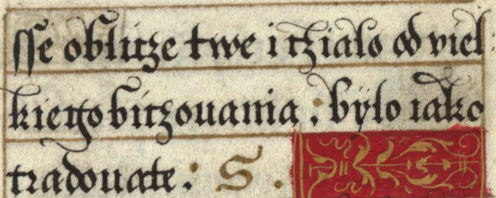 sse oblitze twe i tzialo od viel
kiego bitzouania . bylo iako
tradouate : S .